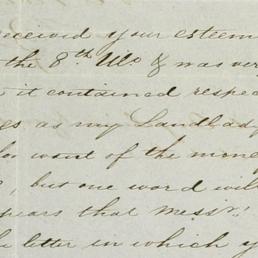 received your esteem
the 8th Ulto & was ver
it contained respec
as my Landlady
for want of the mone
, but one word will
pears that Mess
letter in which y